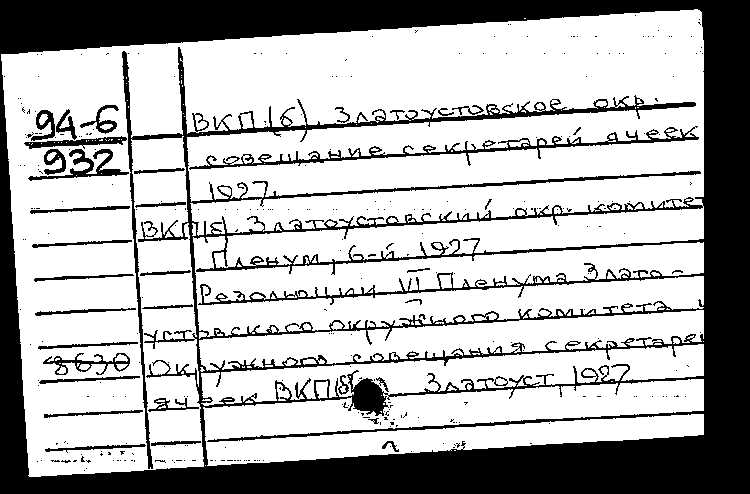 94-6
932
ВКП(б). Златоустовское окр.
совещание секретарей ячеек
1927.
ВКП(б). Златоустовский окр. комитет
Пленум, 6-й. 1927.
Резолюции VI Пленума Злато-
устовского окружного комитета и
8630
Окружного совещания секретарей
ячеек ВКП(б) Златоуст, 1927